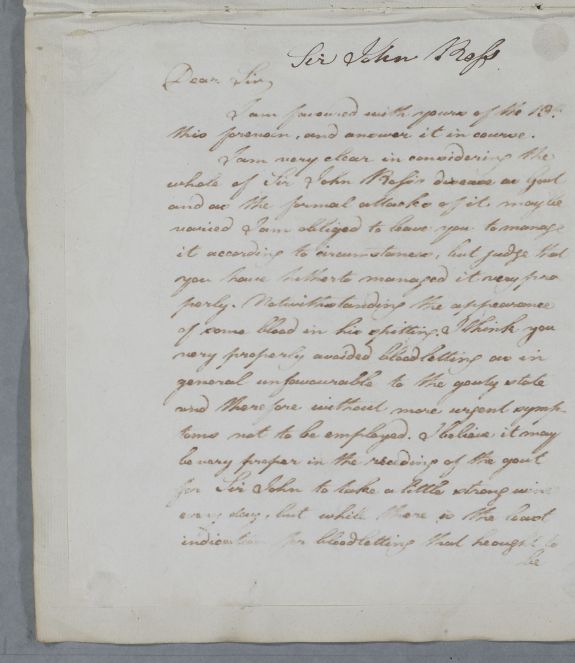 Sir John Ross
Dear Sir,
I am favoured with yours of the 12th.
this forenoon, and answer it in course.
I am very clear in considering the
whole of Sir John Ross's disease as Gout
and as the formal attacks of it may be
varied I am obliged to leave you to manage
it according to circumstances, but judge that
you have hitherto managed it very pro
perly. Notwithstanding the appearance
of some blood in his spitting, I think you
very properly avoided bloodletting as in
general unfavourable to the gouty state
and therefore without more urgent symp-
toms not to be employed. I believe it may
be very proper in the receding of the gout
for Sir John to take a little strong wine
every day, but while there is the least
indication for bloodletting that he ought to
be